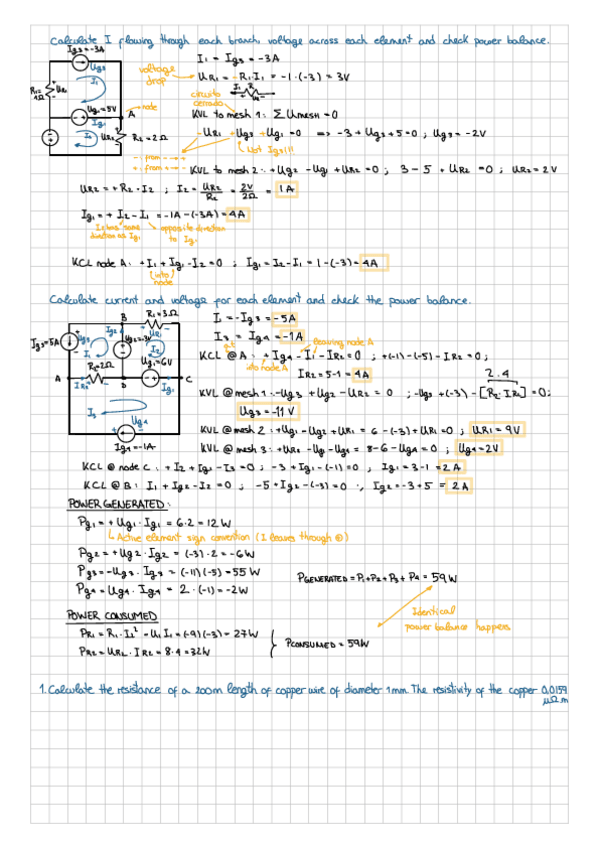 Calculate I flowing through each branch, voltage across each element and check power balance.
Ig3=-3A
Ug3
I1
R1=1Ω
UR1
Ug1=5V
A
node
Ig1
I2
UR2
R2=2Ω
voltage drop
I1 = Ig3 = -3A
UR1 = -R1·I1 = -1·(-3) = 3V
circuito cerrado
KVL to mesh 1: Σ Umesh = 0
-UR1 +Ug3 +Ug1 = 0 => -3+Ug3+5=0 ; Ug3 = -2V
Not Ig3!!!
KVL to mesh 2: +Ug2 -Ug1 +UR2 = 0 ; 3 - 5 + UR2 = 0 ; UR2 = 2V
UR2 = +R2·I2 ; I2 = UR2/R2 = 2V/2Ω = 1A
Ig1 = + I2 - I1 = -1A-(-3A) = 4A
I2 has same direction as Ig1
opposite direction to Ig1
KCL node A: +I1 + Ig1 - I2 = 0 ; Ig1 = I2-I1 = 1-(-3) = 4A
(into) node
Calculate current and voltage for each element and check the power balance.
B
R1=3Ω
UR1
Ig3=5A
Ug3
I1
Ig2
Ug2=-3V
I2
R2=2Ω
Ug1=6V
A
IR2
D
Ig1
C
I3
Ug4
Ig4=-1A
I1 = -Ig3 = -5A
I3 = Ig4 = -1A
leaving node A
KCL @A: + Ig4 - I1 - IR2 = 0 ; +(-1)-(-5)-IR2 = 0;
into node A
IR2 = 5-1 = 4A
2·4
KVL @mesh 1: -Ug3 + Ug2 - UR2 = 0 ; -Ug3 +(-3) - [R2·IR2] = 0;
Ug3 = -11V
KVL @mesh 2: +Ug1 -Ug2 +UR1 = 6 -(-3) +UR1 = 0 ; UR1 = 9V
KVL @mesh 3: +UR2 -Ug1 -Ug4 = 8-6-Ug4 = 0 ; Ug4 = 2V
KCL @ node C: + I2 + Ig1 - I3 = 0 ; -3+Ig1-(-1) = 0 , Ig1 = 3-1 = 2A
KCL @ B: I1 + Ig2 - I2 = 0 ; -5+Ig2-(-3) = 0 ; Ig2 = -3+5 = 2A
POWER GENERATED:
Pg1 = + Ug1 · Ig1 = 6·2 = 12W
Active element sign convention (I leaves through ⊕)
Pg2 = + Ug2 · Ig2 = (-3)·2 = -6W
Pg3 = -Ug3 · Ig3 = (-11)(-5) = 55W
Pg4 = Ug4 · Ig4 = 2·(-1) = -2W
PGENERATED = P1+P2+P3+P4 = 59W
Identical power balance happens
POWER CONSUMED
PR1 = R1·I2² = U1 I1 = (-9)(-3) = 27W
PR2 = UR2·IR2 = 8·4 = 32W
PCONSUMED = 59W
1. Calculate the resistance of a 200m length of copper wire of diameter 1mm. The resistivity of the copper 0,0159
μΩm